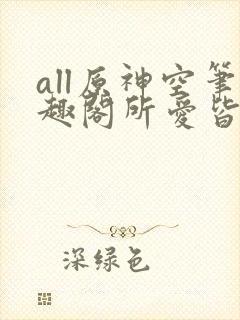 all原神空笔
趣阁所爱皆
深绿色